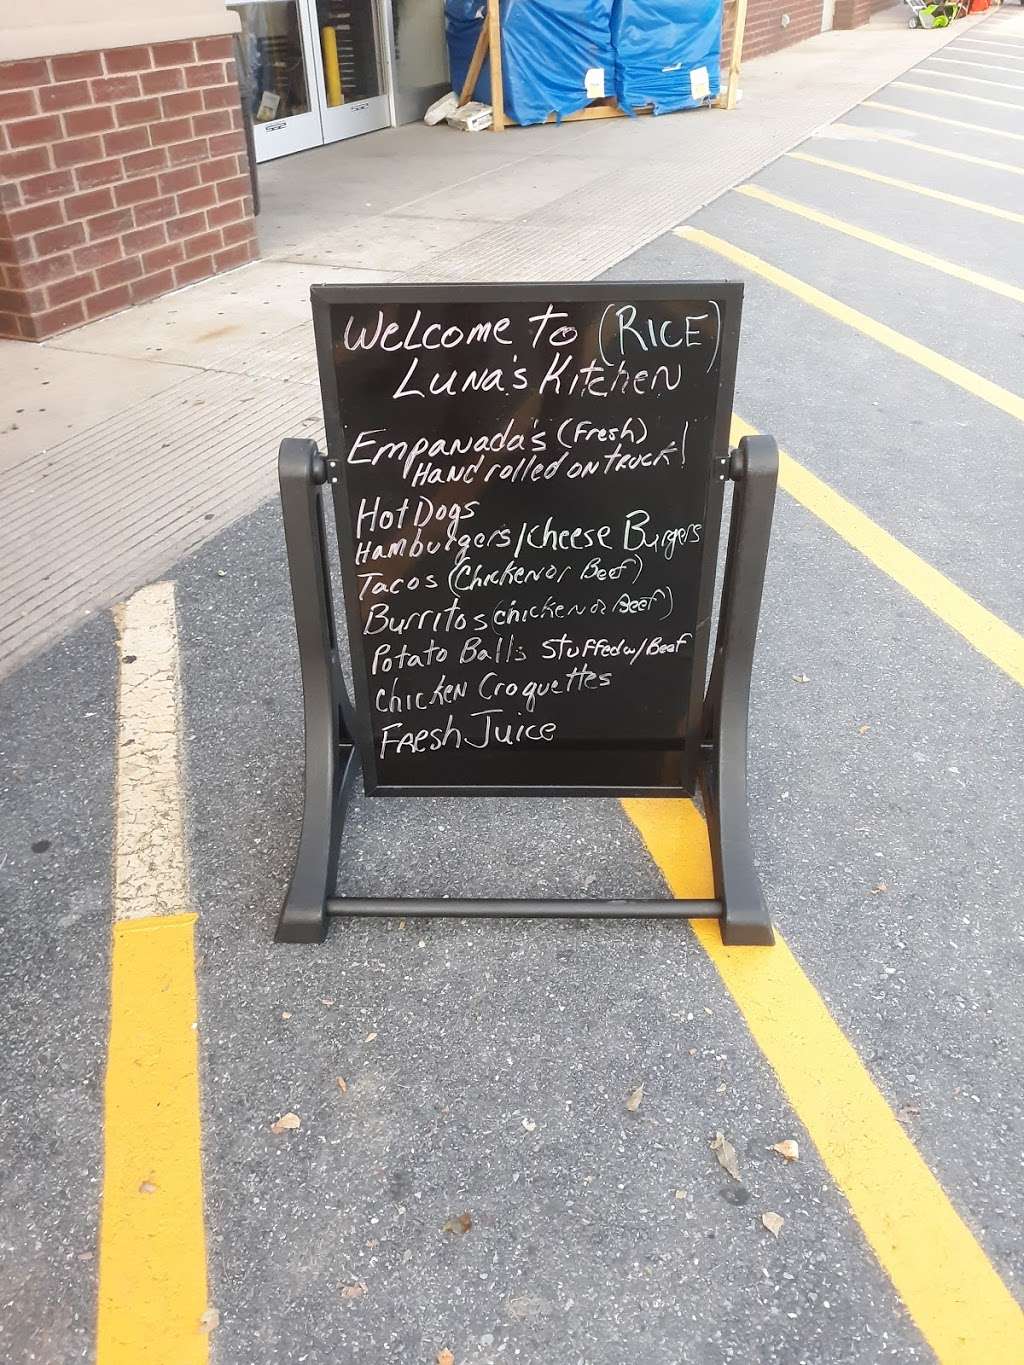 Welcome to (RICE)
Luna's Kitchen
Empanada's (Fresh)
Hand rolled on truck!
Hot Dogs
Hamburgers/Cheese Burgers
Tacos (Chicken or Beef)
Burritos (chicken or Beef)
Potato Balls Stuffed w/Beef
Chicken Croquettes
Fresh Juice